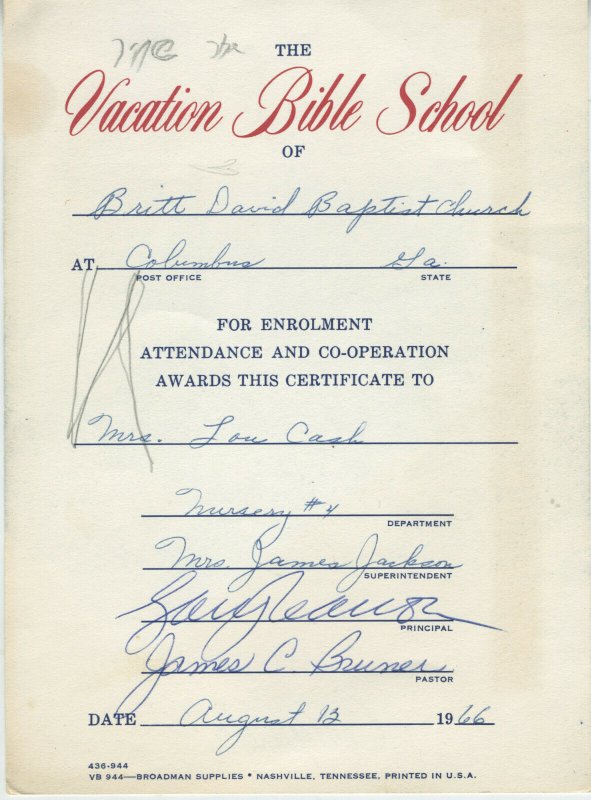 THE
Vacation Bible School
OF
Britt David Baptist Church
AT Columbus Ga.
POST OFFICE STATE
FOR ENROLMENT
ATTENDANCE AND CO-OPERATION
AWARDS THIS CERTIFICATE TO
Mrs. Lou Cash
Nursery #4
DEPARTMENT
Mrs. James Jackson
SUPERINTENDENT
PRINCIPAL
James C. Bruner
PASTOR
DATE August 12 1966
436-944
VB 944—BROADMAN SUPPLIES * NASHVILLE, TENNESSEE, PRINTED IN U.S.A.